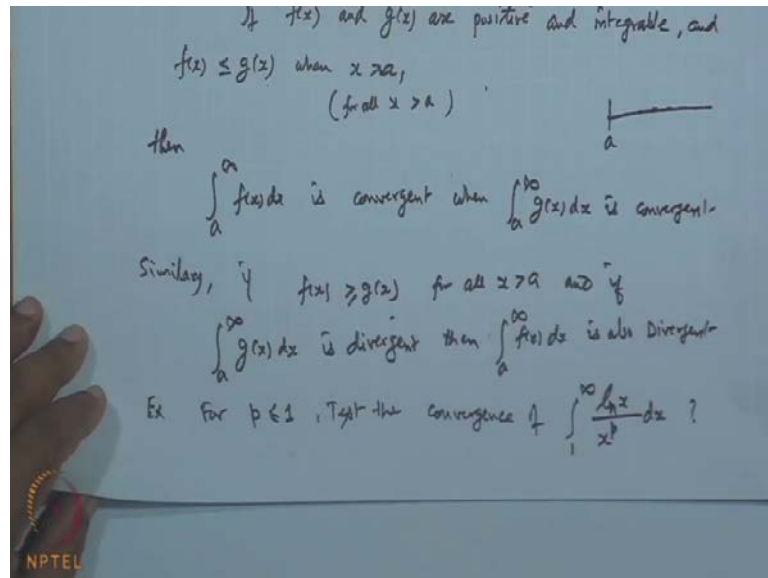 If f(x) and g(x) are positive and integrable, and
f(x) ≤ g(x) when x > a,
(for all x > a)
a
then
∫_a^∞ f(x) dx is convergent when ∫_a^∞ g(x) dx is convergent.
Similary, if f(x) ≥ g(x) for all x > a and if
∫_a^∞ g(x) dx is divergent then ∫_a^∞ f(x) dx is also Divergent.
Ex For p ≤ 1, Test the convergence of ∫_1^∞ ln x / x^p dx ?
NPTEL